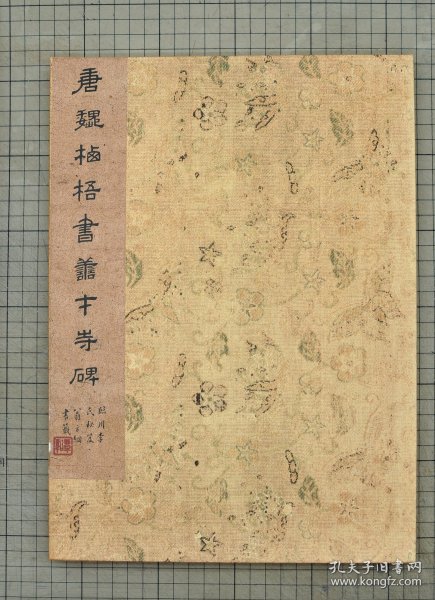 唐魏栖梧書善才寺碑
臨川李
氏秘笈
翁方綱
書籤
孔夫子旧书网
www.kongfz.com